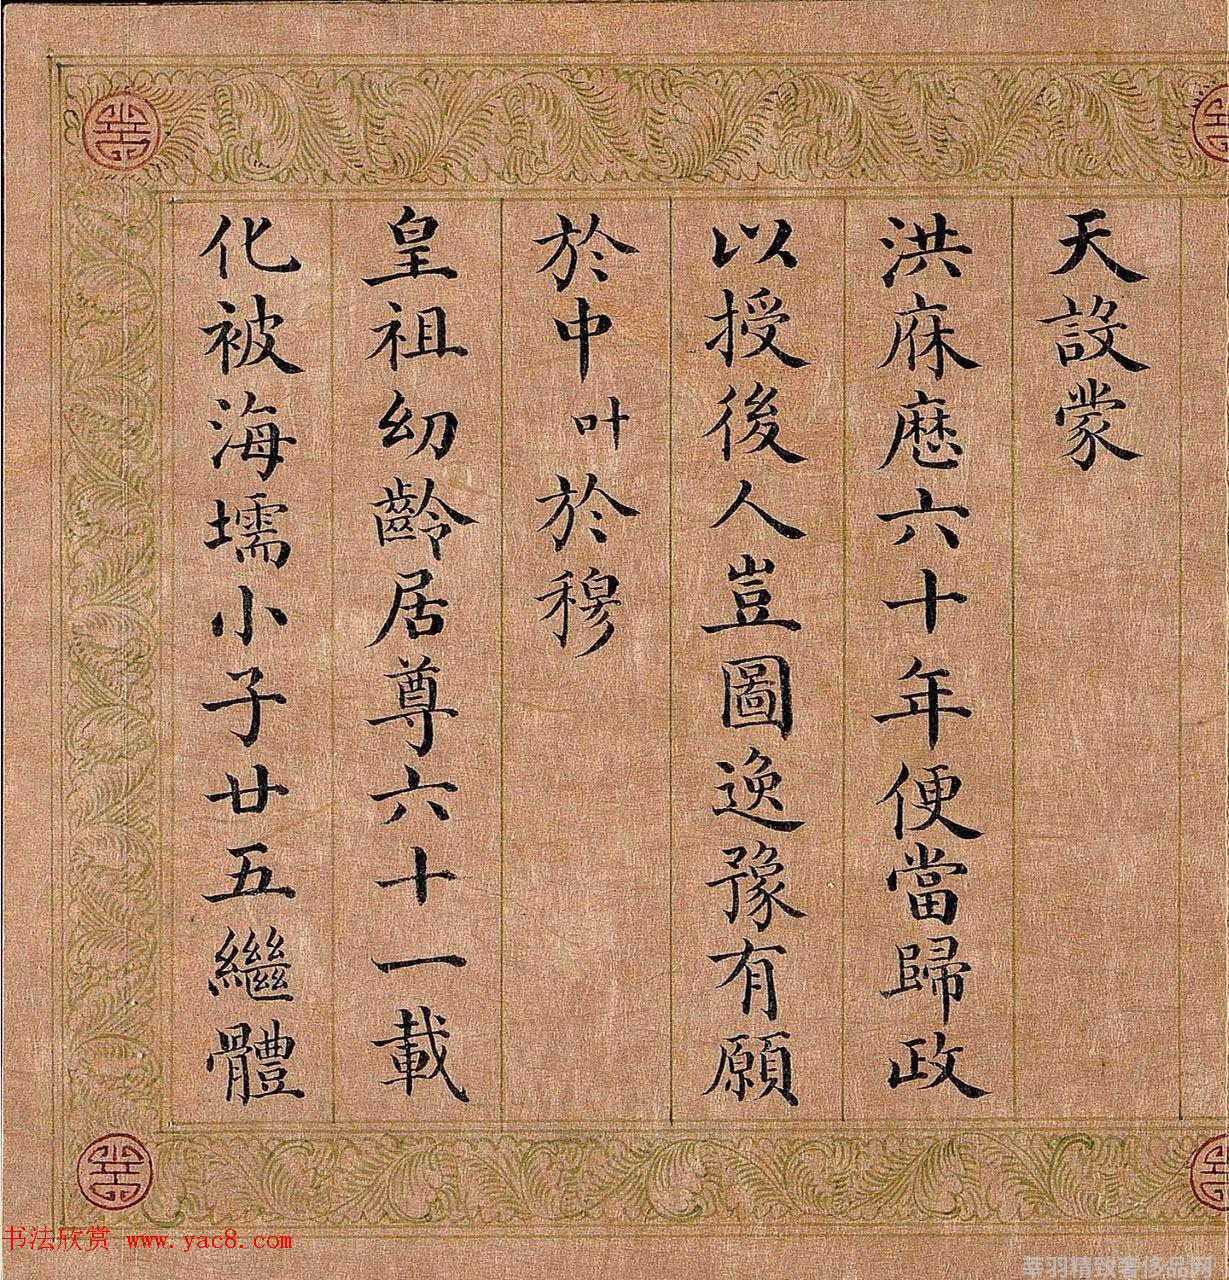 天設蒙
洪庥歷六十年便當歸政
以授後人豈圖逸豫有願
於中叶於穆
皇祖幼齡居尊六十一載
化被海壖小子廿五繼體
书法欣赏 www.yac8.com
莘羽精致奢侈品网